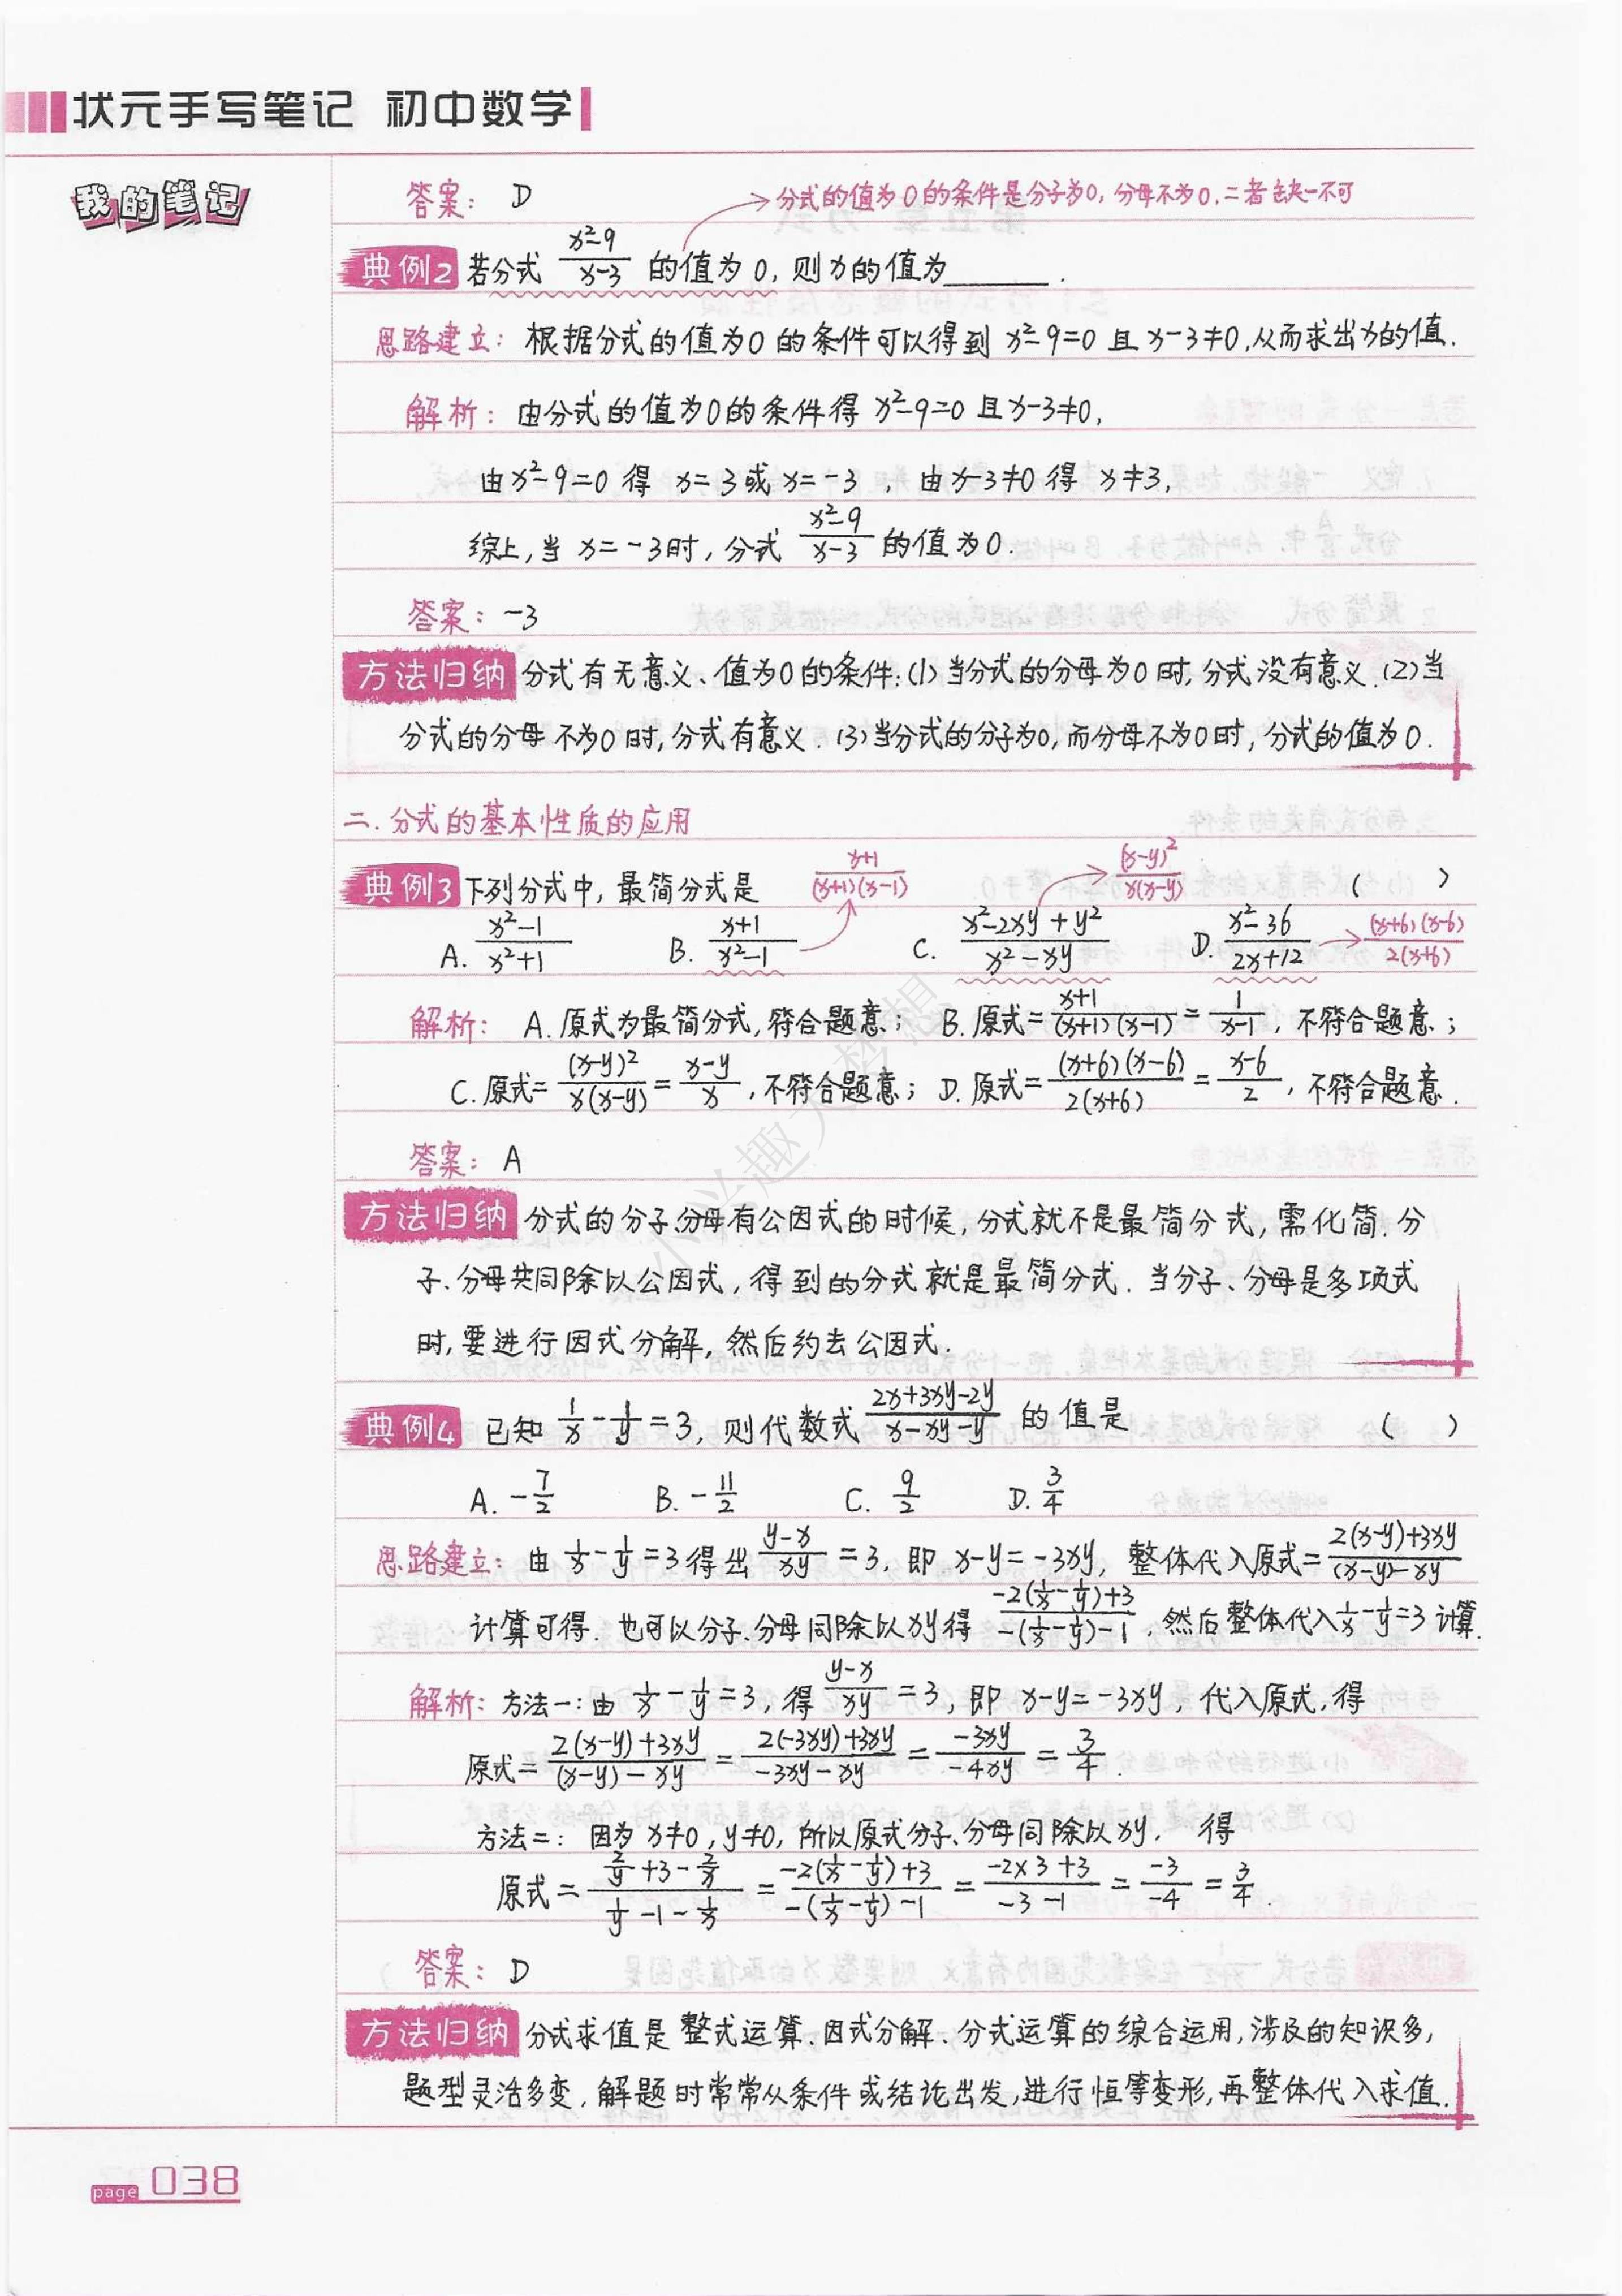 状元手写笔记 初中数学
我的笔记
答案: D
分式的值为0的条件是分子为0, 分母不为0, 二者缺一不可
典例2 若分式 (x²-9)/(x-3) 的值为0, 则x的值为______.
思路建立: 根据分式的值为0的条件可以得到 x²-9=0 且 x-3≠0, 从而求出x的值.
解析: 由分式的值为0的条件得 x²-9=0 且 x-3≠0,
由x²-9=0 得 x=3或x=-3, 由x-3≠0 得 x≠3,
综上, 当 x=-3时, 分式 (x²-9)/(x-3) 的值为0.
答案: -3
方法归纳 分式有无意义、值为0的条件: (1)当分式的分母为0时, 分式没有意义. (2)当
分式的分母不为0时, 分式有意义. (3)当分式的分子为0, 而分母不为0时, 分式的值为0.
二. 分式的基本性质的应用
(x+1)/((x+1)(x-1)) (x-y)²/(x(x-y))
典例3 下列分式中, 最简分式是 ( )
A. (x²-1)/(x²+1) B. (x+1)/(x²-1) C. (x²-2xy+y²)/(x²-xy) D. (x²-36)/(2x+12) (x+6)(x-6)/(2(x+6))
解析: A. 原式为最简分式, 符合题意; B. 原式=(x+1)/((x+1)(x-1))=1/(x-1), 不符合题意;
C. 原式=(x-y)²/(x(x-y))=(x-y)/x, 不符合题意; D. 原式=(x+6)(x-6)/(2(x+6))=(x-6)/2, 不符合题意.
答案: A
方法归纳 分式的分子、分母有公因式的时候, 分式就不是最简分式, 需化简. 分
子、分母共同除以公因式, 得到的分式就是最简分式. 当分子、分母是多项式
时, 要进行因式分解, 然后约去公因式.
典例4 已知 1/x-1/y=3, 则代数式 (2x+3xy-2y)/(x-xy-y) 的值是 ( )
A. -7/2 B. -11/2 C. 9/2 D. 3/4
思路建立: 由 1/x-1/y=3 得出 (y-x)/xy=3, 即 x-y=-3xy, 整体代入原式=(2(x-y)+3xy)/((x-y)-xy)
计算可得. 也可以分子、分母同除以xy得 (-2(1/x-1/y)+3)/(-(1/x-1/y)-1), 然后整体代入1/x-1/y=3计算.
解析: 方法一: 由 1/x-1/y=3, 得 (y-x)/xy=3, 即 x-y=-3xy, 代入原式, 得
原式=(2(x-y)+3xy)/((x-y)-xy)=(2(-3xy)+3xy)/(-3xy-xy)=(-3xy)/(-4xy)=3/4.
方法二: 因为 x≠0, y≠0, 所以原式分子、分母同除以xy, 得
原式=(2/y+3-2/x)/(1/y-1-1/x)=(-2(1/x-1/y)+3)/(-(1/x-1/y)-1)=(-2×3+3)/(-3-1)=(-3)/(-4)=3/4.
答案: D
方法归纳 分式求值是整式运算、因式分解、分式运算的综合运用, 涉及的知识多,
题型灵活多变, 解题时常常从条件或结论出发, 进行恒等变形, 再整体代入求值.
page 038